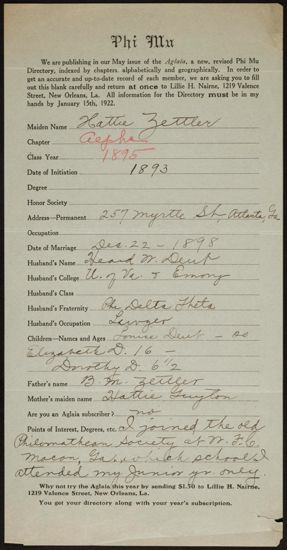 Phi Mu
We are publishing in our May issue of the Aglaia, a new, revised Phi Mu
Directory, indexed by chapters, alphabetically and geographically. In order to
get an accurate and up-to-date record of each member, we are asking you to fill
out this blank carefully and return at once to Lillie H. Nairne, 1219 Valence
Street, New Orleans, La. All information for the Directory must be in my
hands by January 15th, 1922.
Maiden Name Hattie Zettler
Chapter Alpha
Class Year 1895
Date of Initiation 1893
Degree
Honor Society
Address—Permanent 257 Myrtle St, Atlanta, Ga
Occupation
Date of Marriage Dec. 22 - 1898
Husband's Name Heard W. Dent
Husband's College U. of Va. & Emory
Husband's Class
Husband's Fraternity Phi Delta Theta
Husband's Occupation Lawyer
Children—Names and Ages Louise Dent - 20
Elizabeth D. 16 -
Dorothy D. 6 1/2
Father's name B. M. Zettler
Mother's maiden name Hattie Guyton
Are you an Aglaia subscriber? no
Points of Interest, Degrees, etc. I joined the old
Philomathean Society at W. F. C.
Macon, Ga., which school I
attended my Junior yr. only
Why not try the Aglaia this year by sending $1.50 to Lillie H. Nairne,
1219 Valence Street, New Orleans, La.
You get your directory along with your year's subscription.